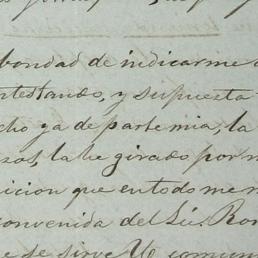 bondad de indicarme
ntestando, y supuesta
cho ya de parte mia, la
la he girado por
icion que en todo me
convenida del Sr. Ro
se sirve V. comun